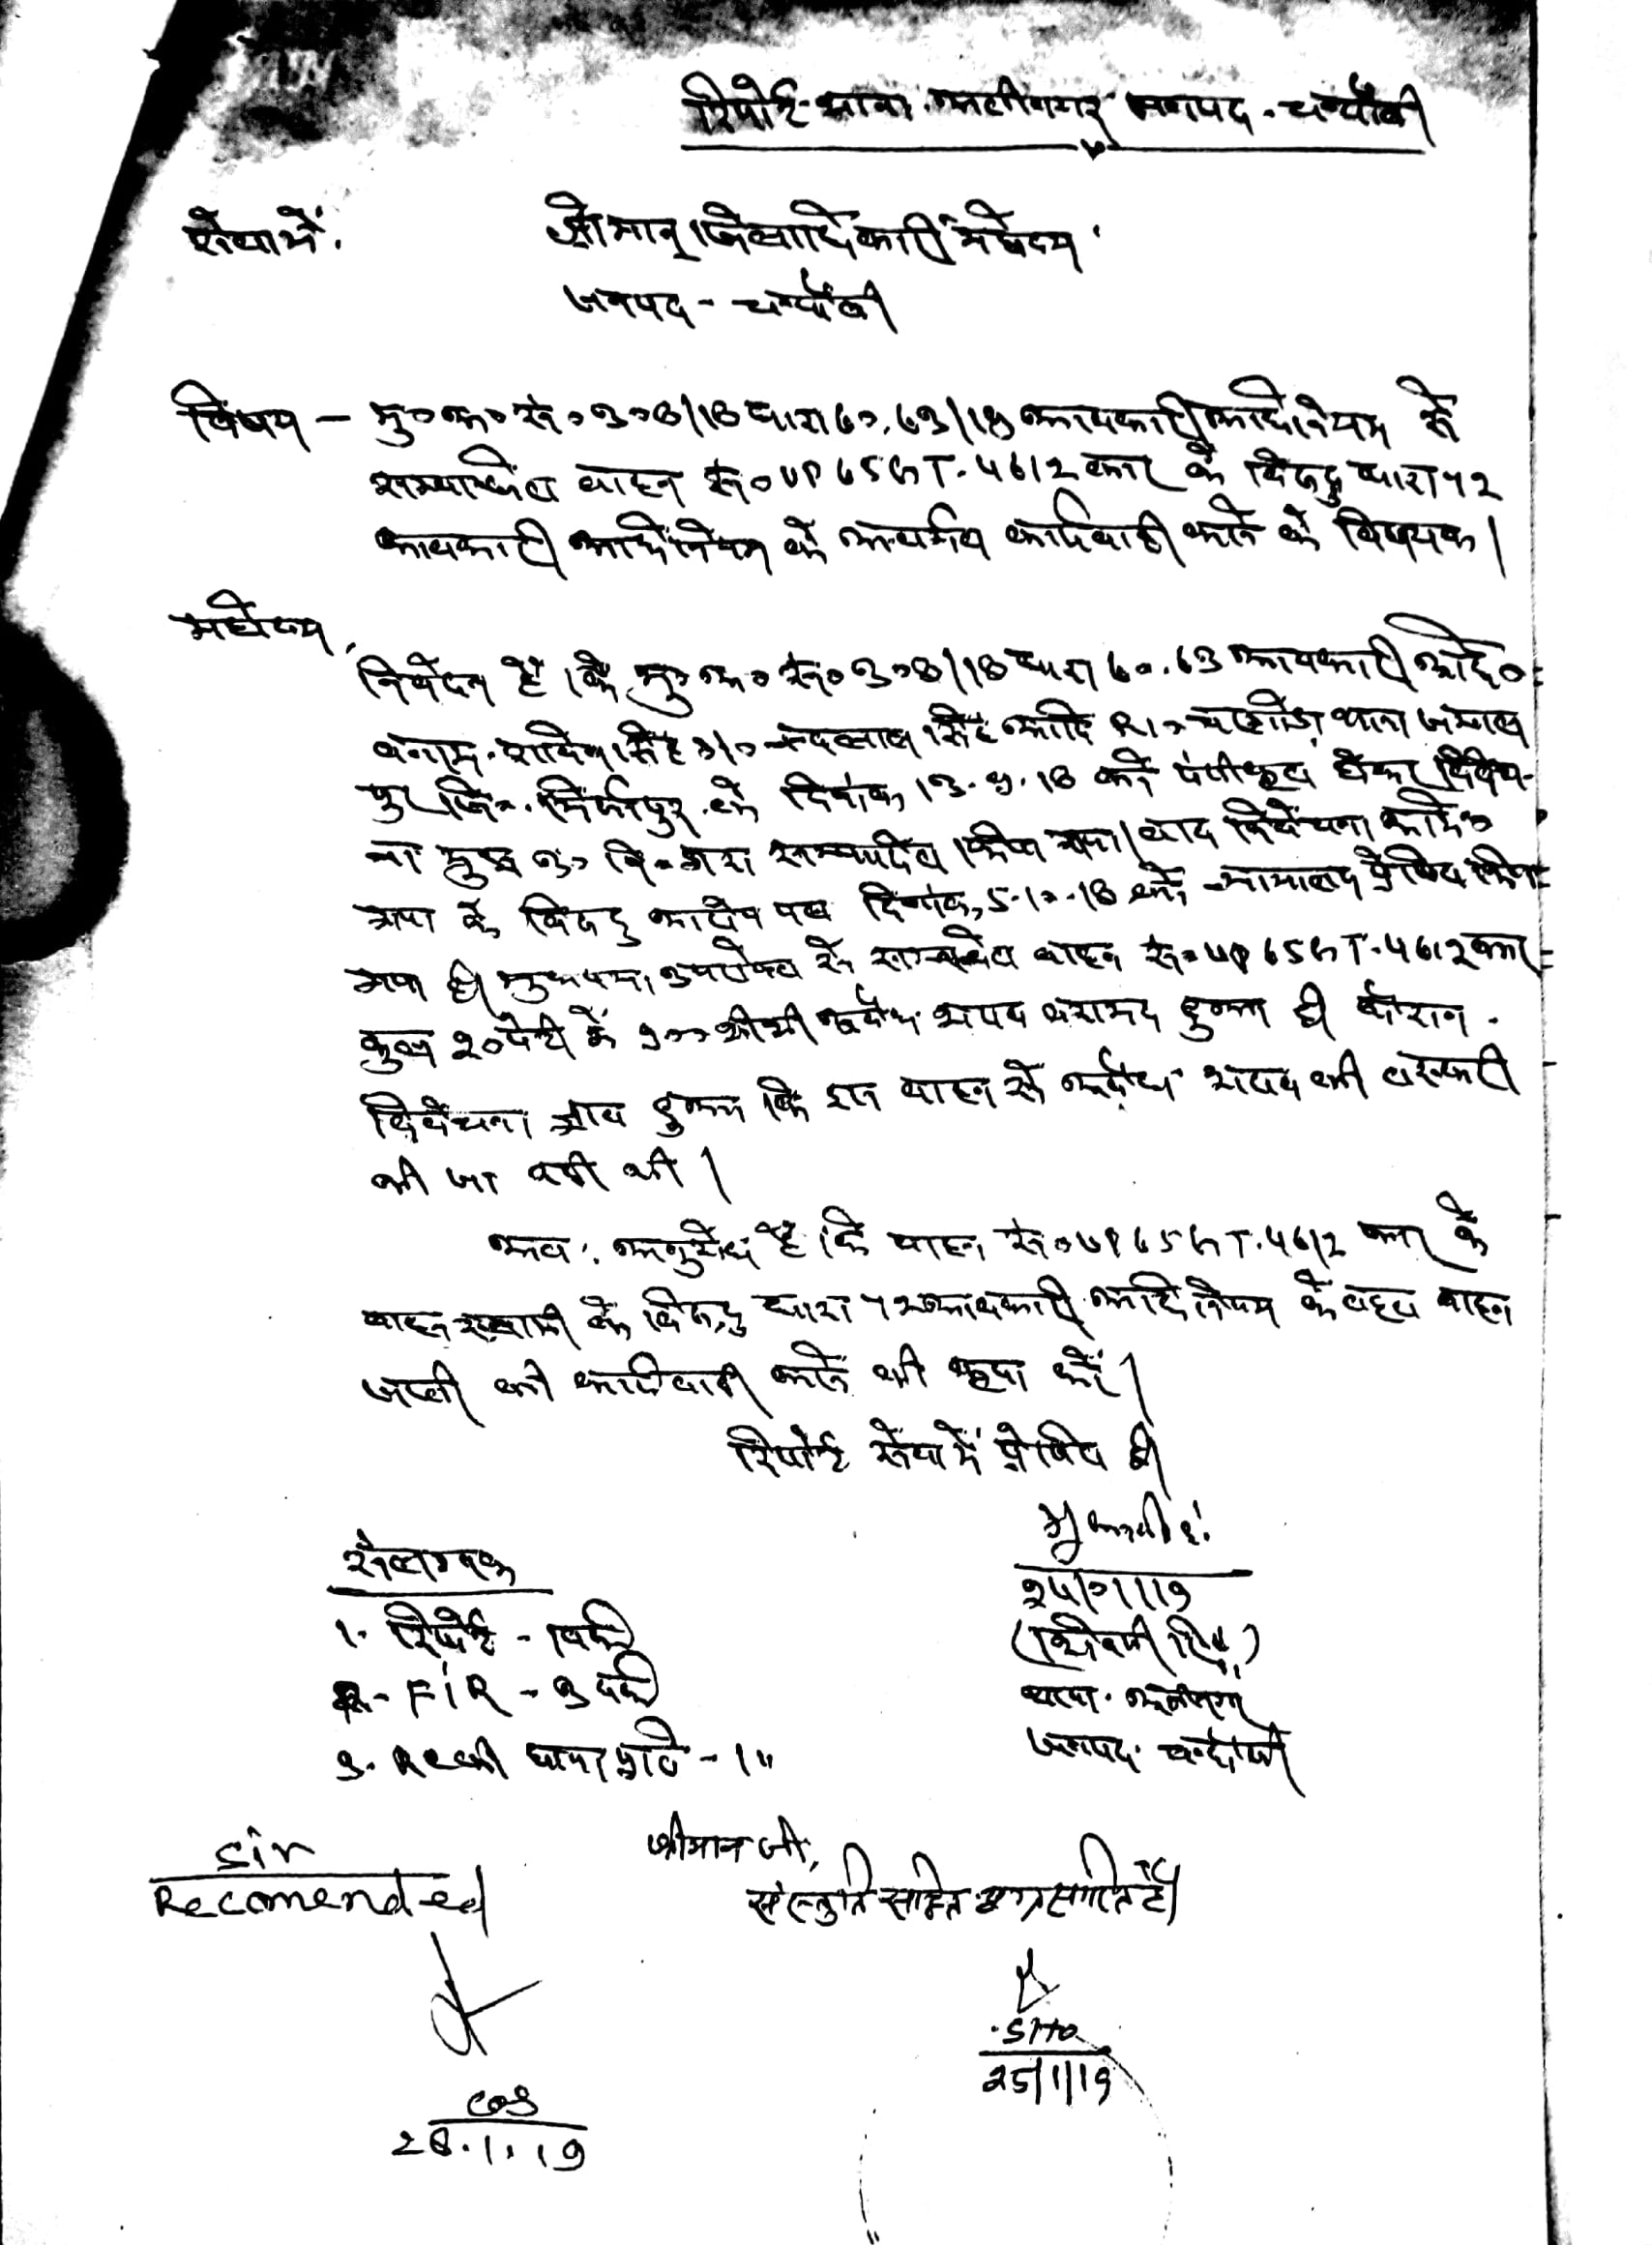 रिपोर्ट थाना अलीनगर जनपद - चन्दौली
सेवा में,
श्रीमान् जिलाधिकारी महोदय,
जनपद - चन्दौली
विषय - मु०अ०सं० 308/18 धारा 60, 63 आबकारी अधिनियम से
सम्बन्धित वाहन सं० UP65 4612 कार के विरुद्ध धारा 72
आबकारी अधिनियम के अन्तर्गत कार्यवाही करने के विषयक।
महोदय,
निवेदन है कि मु०अ०सं० 308/18 धारा 60, 63 आबकारी अधि०
बनाम सिंह नन्दलाल सिंह आदि थाना जमाल
पुर जि० मिर्जापुर के दिनांक 13.9.18 को पंजीकृत होकर विवेच-
ना मुझ उ०नि० द्वारा सम्पादित किया गया। बाद विवेचना
के विरुद्ध आरोप पत्र दिनांक 5.10.18 को न्यायालय प्रेषित किया
गया है। मुकदमा उपरोक्त से सम्बन्धित वाहन सं० UP65 4612 कार
कुल 20 पेटी में शीशी अवैध शराब बरामद हुआ है। दौरान
विवेचना ज्ञात हुआ कि इस वाहन से अवैध शराब की तस्करी
की जा रही थी।
अतः अनुरोध है कि वाहन सं० UP65 4612 कार के
वाहन स्वामी के विरुद्ध धारा 72 आबकारी अधिनियम के तहत वाहन
जब्ती की कार्यवाही करने की कृपा करें।
रिपोर्ट सेवा में प्रेषित है।
संलग्नक
1- रिपोर्ट - 1 वर्क
2- FIR - 3 वर्क
3- RC की छाया प्रति - 1"
थाना अलीनगर
जनपद चन्दौली
Sir
Recomended
श्रीमान जी,
संस्तुति सहित अग्रसारित है।
SHO
25/1/19
COS
28.1.19